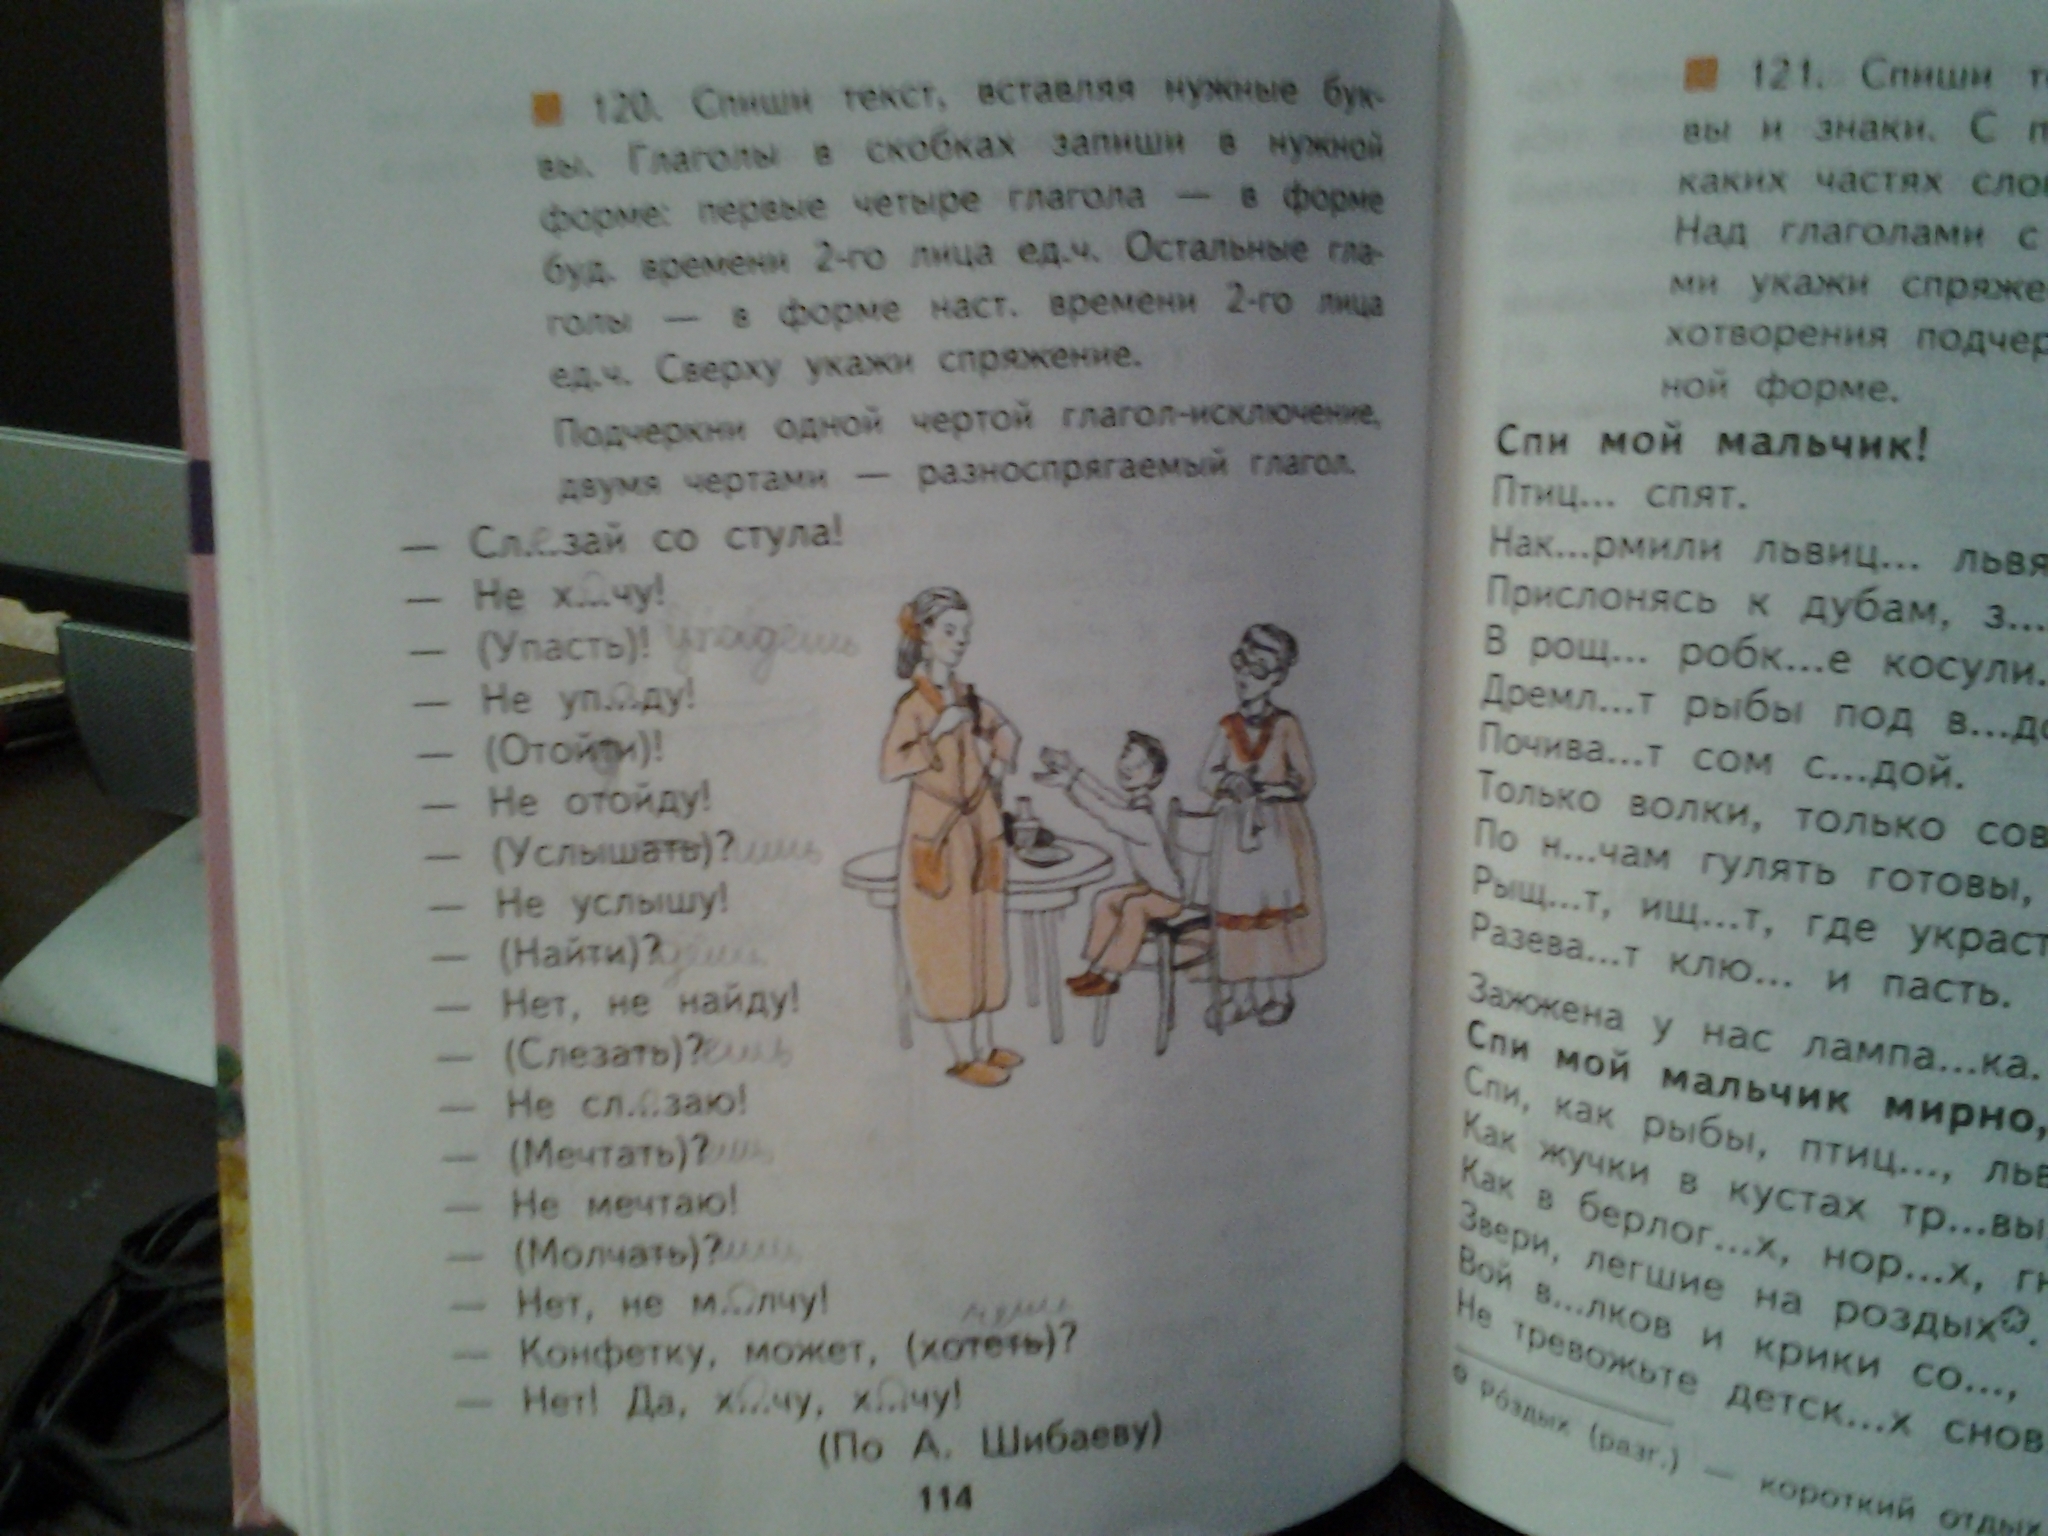 120. Спиши текст, вставляя нужные бук-
вы. Глаголы в скобках запиши в нужной
форме: первые четыре глагола — в форме
буд. времени 2-го лица ед.ч. Остальные гла-
голы — в форме наст. времени 2-го лица
ед.ч. Сверху укажи спряжение.
Подчеркни одной чертой глагол-исключение,
двумя чертами — разноспрягаемый глагол.
— Сл.е.зай со стула!
— Не х.о.чу!
— (Упасть)! упадёшь
— Не уп.а.ду!
— (Отойти)!
— Не отойду!
— (Услышать)? ишь
— Не услышу!
— (Найти)? дёшь
— Нет, не найду!
— (Слезать)? ешь
— Не сл.е.заю!
— (Мечтать)? ешь
— Не мечтаю!
— (Молчать)? ишь
— Нет, не м.о.лчу!
— Конфетку, может, (хотеть)?
— Нет! Да, х.о.чу, х.о.чу!
(По А. Шибаеву)
114
121. Спиши
вы и знаки. С
каких частях
Над глаголами с
ми укажи
хотворения
ной форме.
Спи мой мальчик!
Птиц... спят.
Нак...рмили львиц...
Прислонясь к дубам, з...
В рощ... робк...е косули.
Дремл...т рыбы под
Почива...т сом с...дой.
Только волки, только
По н...чам гулять готовы,
Рыщ...т, ищ...т, где
Разева...т клю... и пасть.
Зажжена у нас лампа...ка.
Спи мой мальчик мирно,
Спи, как рыбы, птиц...,
Как жучки в кустах тр...вы
Как в берлог...х, нор...х,
Звери, легшие на роздых.
Вой в...лков и крики со...,
Не тревожьте детск...х снов
Ро́здых (разг.) — короткий отдых